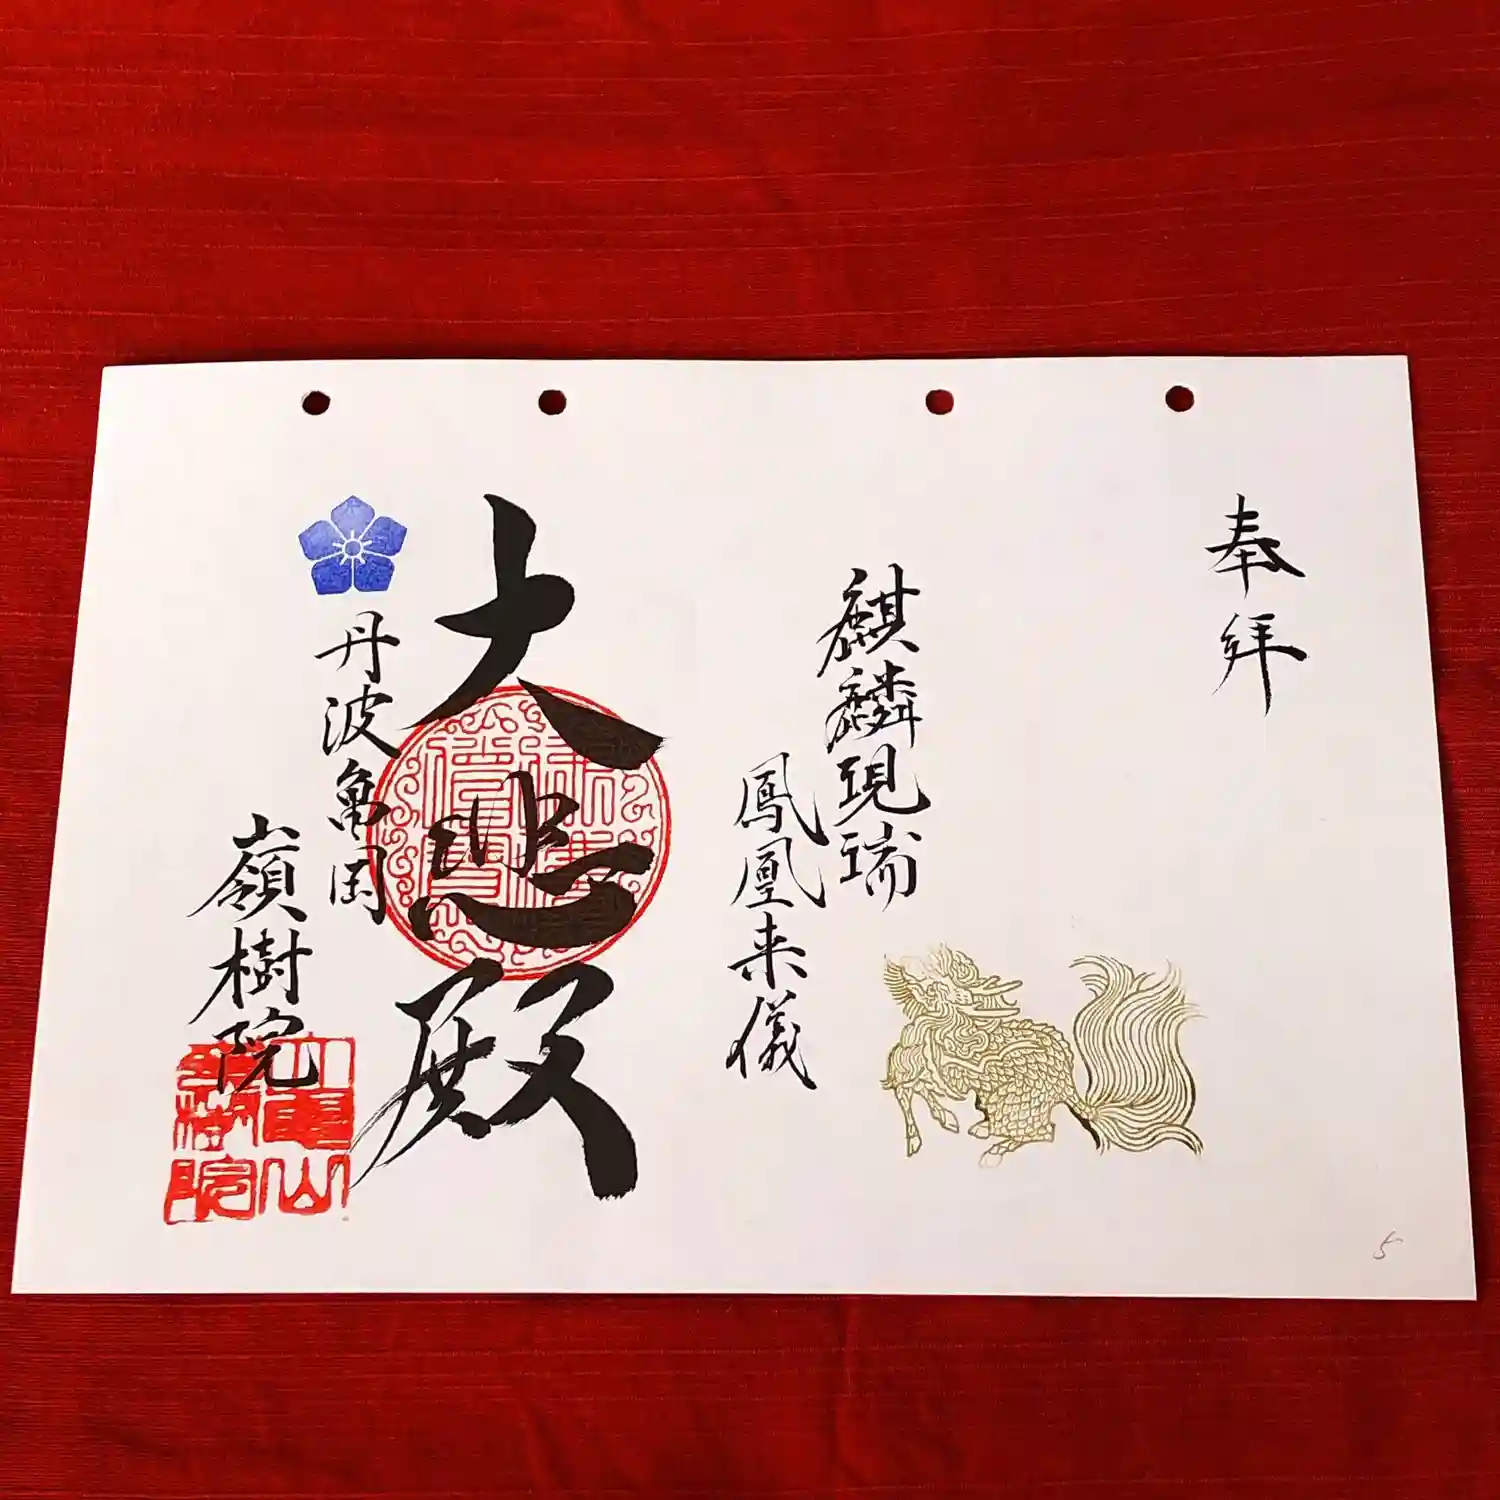 奉拝
麒麟現瑞
鳳凰来儀
大悲殿
丹波亀岡
嶺樹院
5